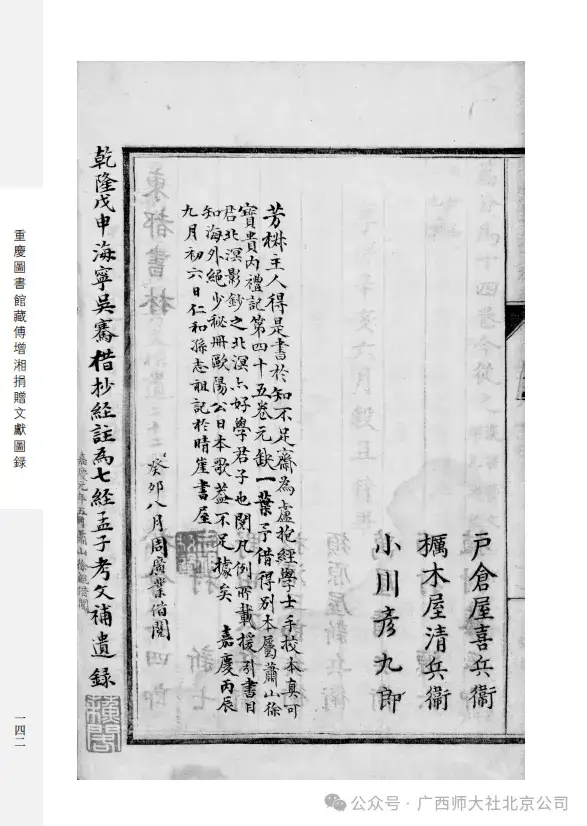 戶倉屋喜兵衞
欘木屋清兵衞
小川彦九郎
芳椒主人得是書於知不足齋為盧抱經學士手校本真可
寶貴内禮記第四十五卷元缺一葉予借得别本屬蕭山徐
君北溟影鈔之北溟亦好學君子也閲凡例所載援引書目
知海外絶少秘册歐陽公日本歌蓋不足據矣 嘉慶丙辰
九月初六日仁和孫志祖記於晴崖書屋
癸卯八月周廣業借閲
嘉慶元年五月蕭山徐鯤借閲
乾隆戊申海寧吳騫借抄經註為七經孟子考文補遺録
重慶圖書館藏傅增湘捐贈文獻圖録
一四二
公众号 · 广西师大社北京公司